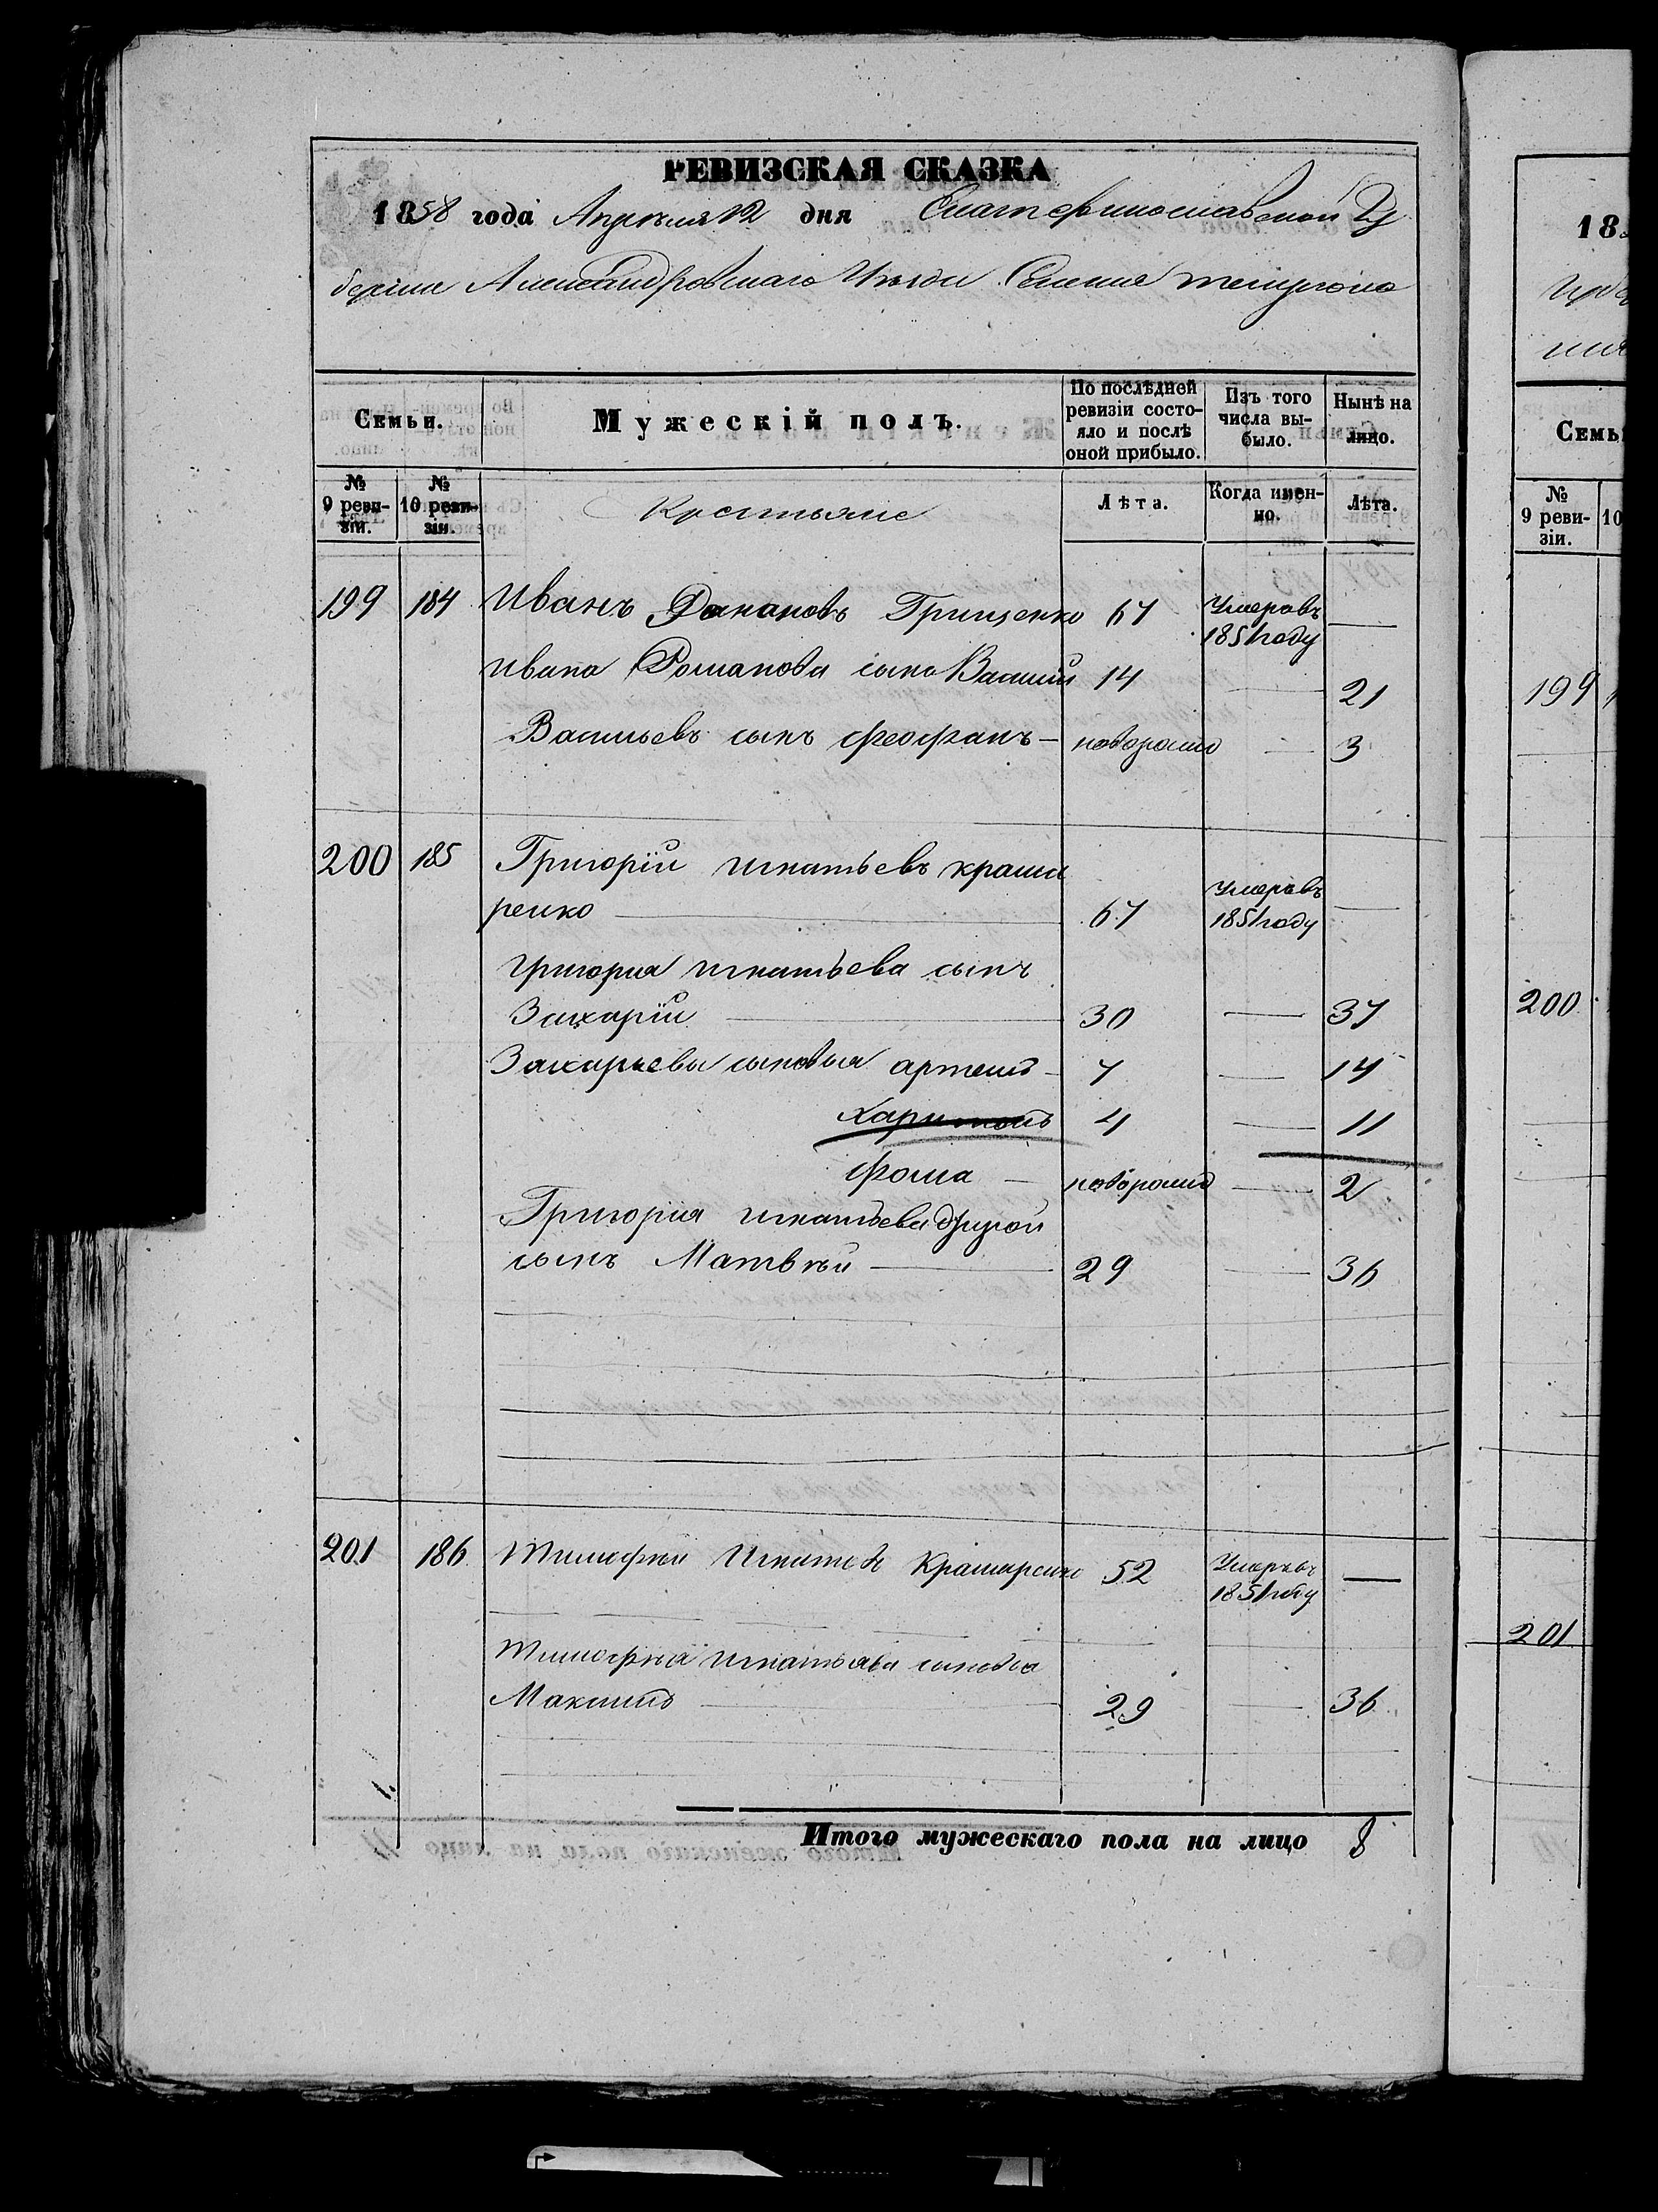 РЕВИЗСКАЯ СКАЗКА
1858 года Апреля 12 дня Екатеринославской Гу
берніи Александровскаго Уѣзда Селенія
Семьи.
Мужескій полъ.
По послѣдней ревизіи состояло и послѣ оной прибыло.
Изъ того числа выбыло.
Нынѣ на лицо.
№ 9 ревизіи.
№ 10 ревизіи.
Крестьяне
Лѣта.
Когда именно.
Лѣта.
199 184 Иванъ Романовъ Грищенко 67 Умеръ въ 1851 году —
Ивана Романова сынъ Василій 14 — 21
Васильевъ сынъ Феофанъ — новорожд — 3
200 185 Григорій Игнатьевъ Крама
ренко — 67 Умеръ въ 1851 году —
Григория Игнатьева сынъ
Захарій — 30 — 37
Захарьевы сыновья Артемъ — 7 — 14
Харитонъ 4 — 11
Фома — новорожд — 2
Григория Игнатьева другой
сынъ Матвѣй — 29 — 36
201 186 Тимофѣй Игнатьевъ Крамаренко 52 Умеръ въ 1851 году —
Тимофѣя Игнатьева сыновья
Максимъ — 29 — 36
Итого мужескаго пола на лицо 8
18
Семь
№ 9 ревизіи.
10
199
200
201